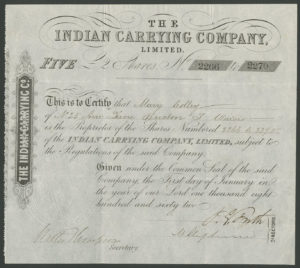 THE
INDIAN CARRYING COMPANY,
LIMITED.
FIVE £2 Shares, No 2266 to 2270
This is to Certify that Mary
of No 25
is the Proprietor of the Shares Numbered 2266 to 2270
of the INDIAN CARRYING COMPANY, LIMITED, subject to
the Regulations of the said Company.
Given under the Common Seal of the said
Company, the First day of January in
the year of our Lord one thousand eight
hundred and sixty two
Secretary
DIRECTORS
THE INDIAN CARRYING Co